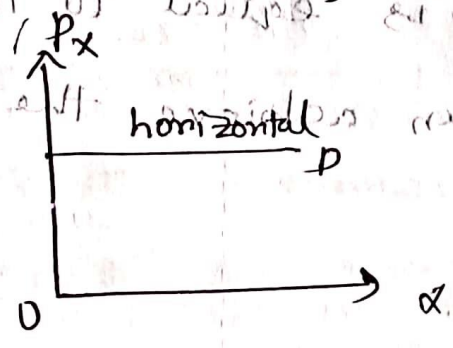 Px
horizontal
D
O
x